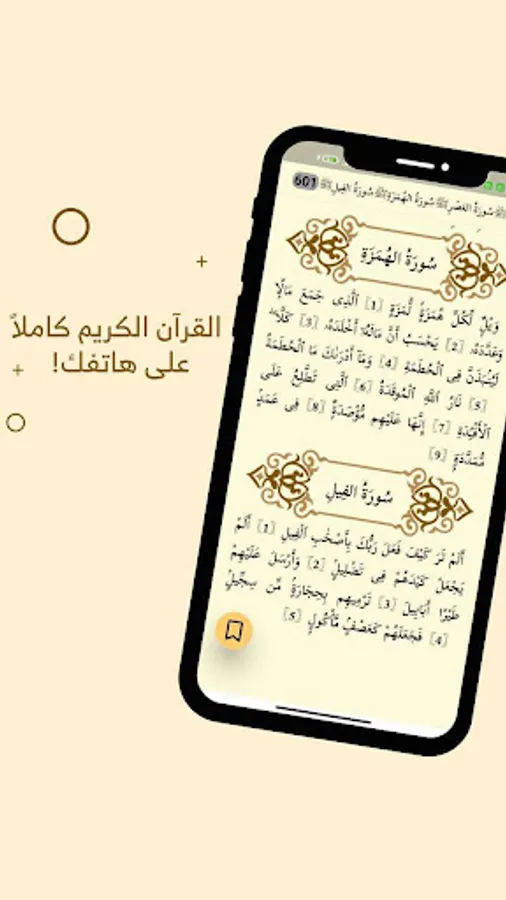 القرآن الكريم كاملاً
على هاتفك!
601
سُورَةُ العَصْرِ ﷺ سُورَةُ الهُمَزَةِ ﷺ سُورَةُ الفِيلِ ﷺ
سُورَةُ الهُمَزَةِ
وَيْلٌ لِّكُلِّ هُمَزَةٍ لُّمَزَةٍ [1] ٱلَّذِى جَمَعَ مَالًا
وَعَدَّدَهُۥ [2] يَحْسَبُ أَنَّ مَالَهُۥٓ أَخْلَدَهُۥ [3] كَلَّا ۖ
لَيُنۢبَذَنَّ فِى ٱلْحُطَمَةِ [4] وَمَآ أَدْرَىٰكَ مَا ٱلْحُطَمَةُ
[5] نَارُ ٱللَّهِ ٱلْمُوقَدَةُ [6] ٱلَّتِى تَطَّلِعُ عَلَى
ٱلْأَفْـِٔدَةِ [7] إِنَّهَا عَلَيْهِم مُّؤْصَدَةٌ [8] فِى عَمَدٍ
مُّمَدَّدَةٍۭ [9]
سُورَةُ الفِيلِ
أَلَمْ تَرَ كَيْفَ فَعَلَ رَبُّكَ بِأَصْحَٰبِ ٱلْفِيلِ [1] أَلَمْ
يَجْعَلْ كَيْدَهُمْ فِى تَضْلِيلٍ [2] وَأَرْسَلَ عَلَيْهِمْ
طَيْرًا أَبَابِيلَ [3] تَرْمِيهِم بِحِجَارَةٍ مِّن سِجِّيلٍ
[4] فَجَعَلَهُمْ كَعَصْفٍ مَّأْكُولٍۭ [5]